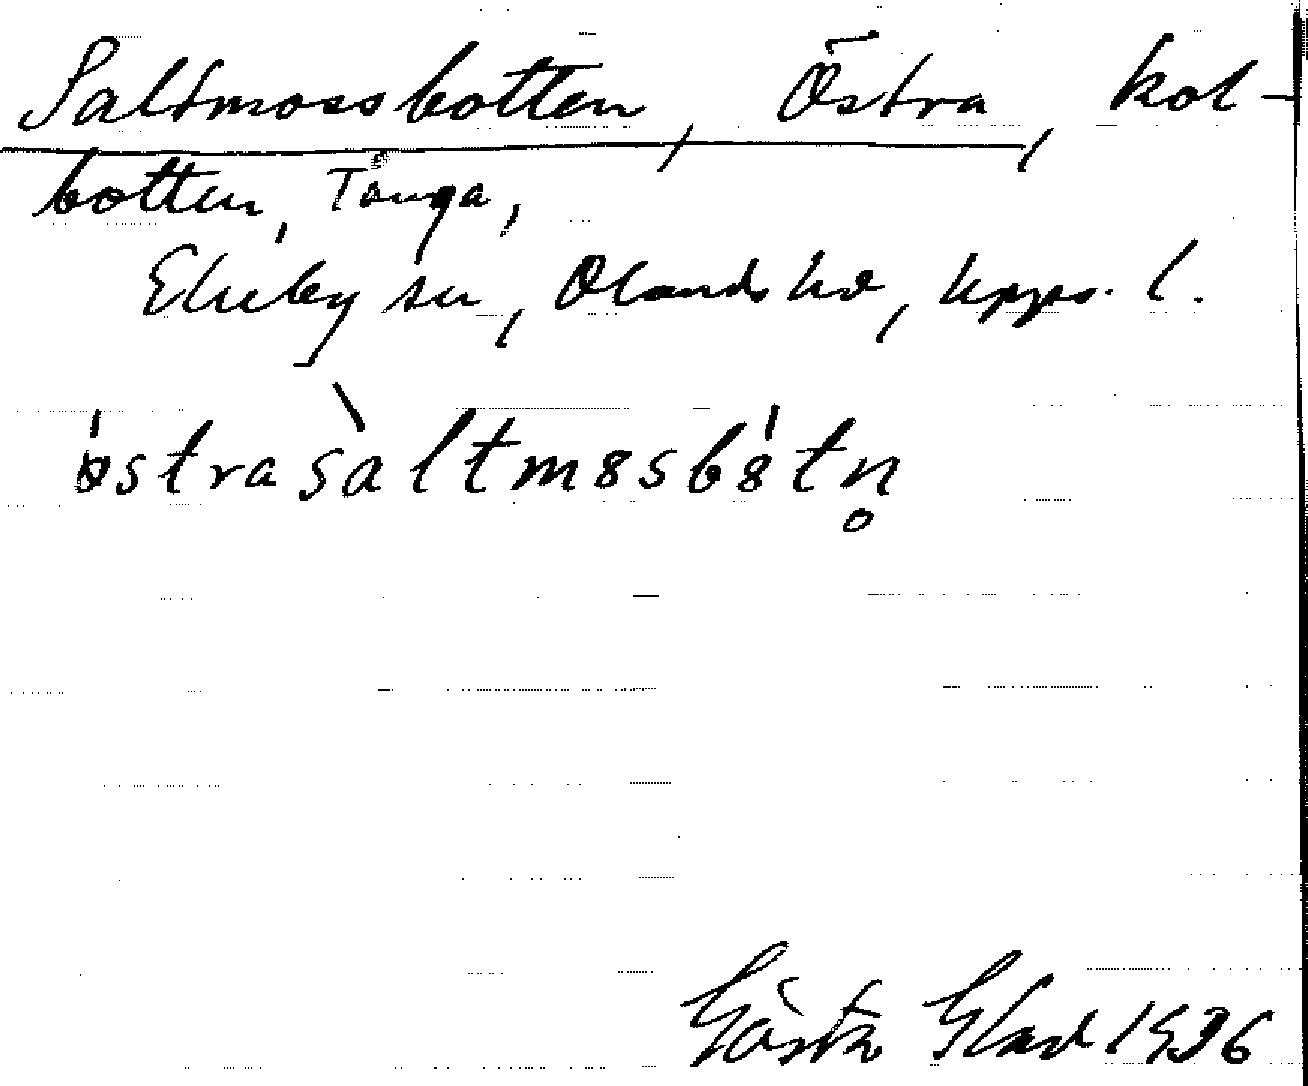 Saltmossbotten, Östra, kol-
botten, Tånga,
Ekeby sn, Olands hd, Upps. l.
østrasàltmɞsbɞ́tn̥
Gösta Glad 1936